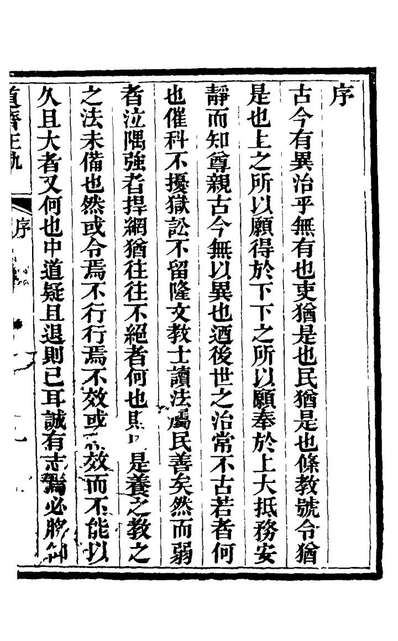 序
古今有異治乎無有也吏猶是也民猶是也條教號令猶
是也上之所以願得於下下之所以願奉於上大抵務安
靜而知尊親古今無以異也迺後世之治常不古若者何
也催科不擾獄訟不留隆文教士讀法屬民善矣然而弱
者泣隅強者捍網猶往往不絕者何也則是養之教之
之法未備也然或令焉不行行焉不效或效而不能以
久且大者又何也中道疑且退則已耳誠有志焉必將
道齊正軌
序